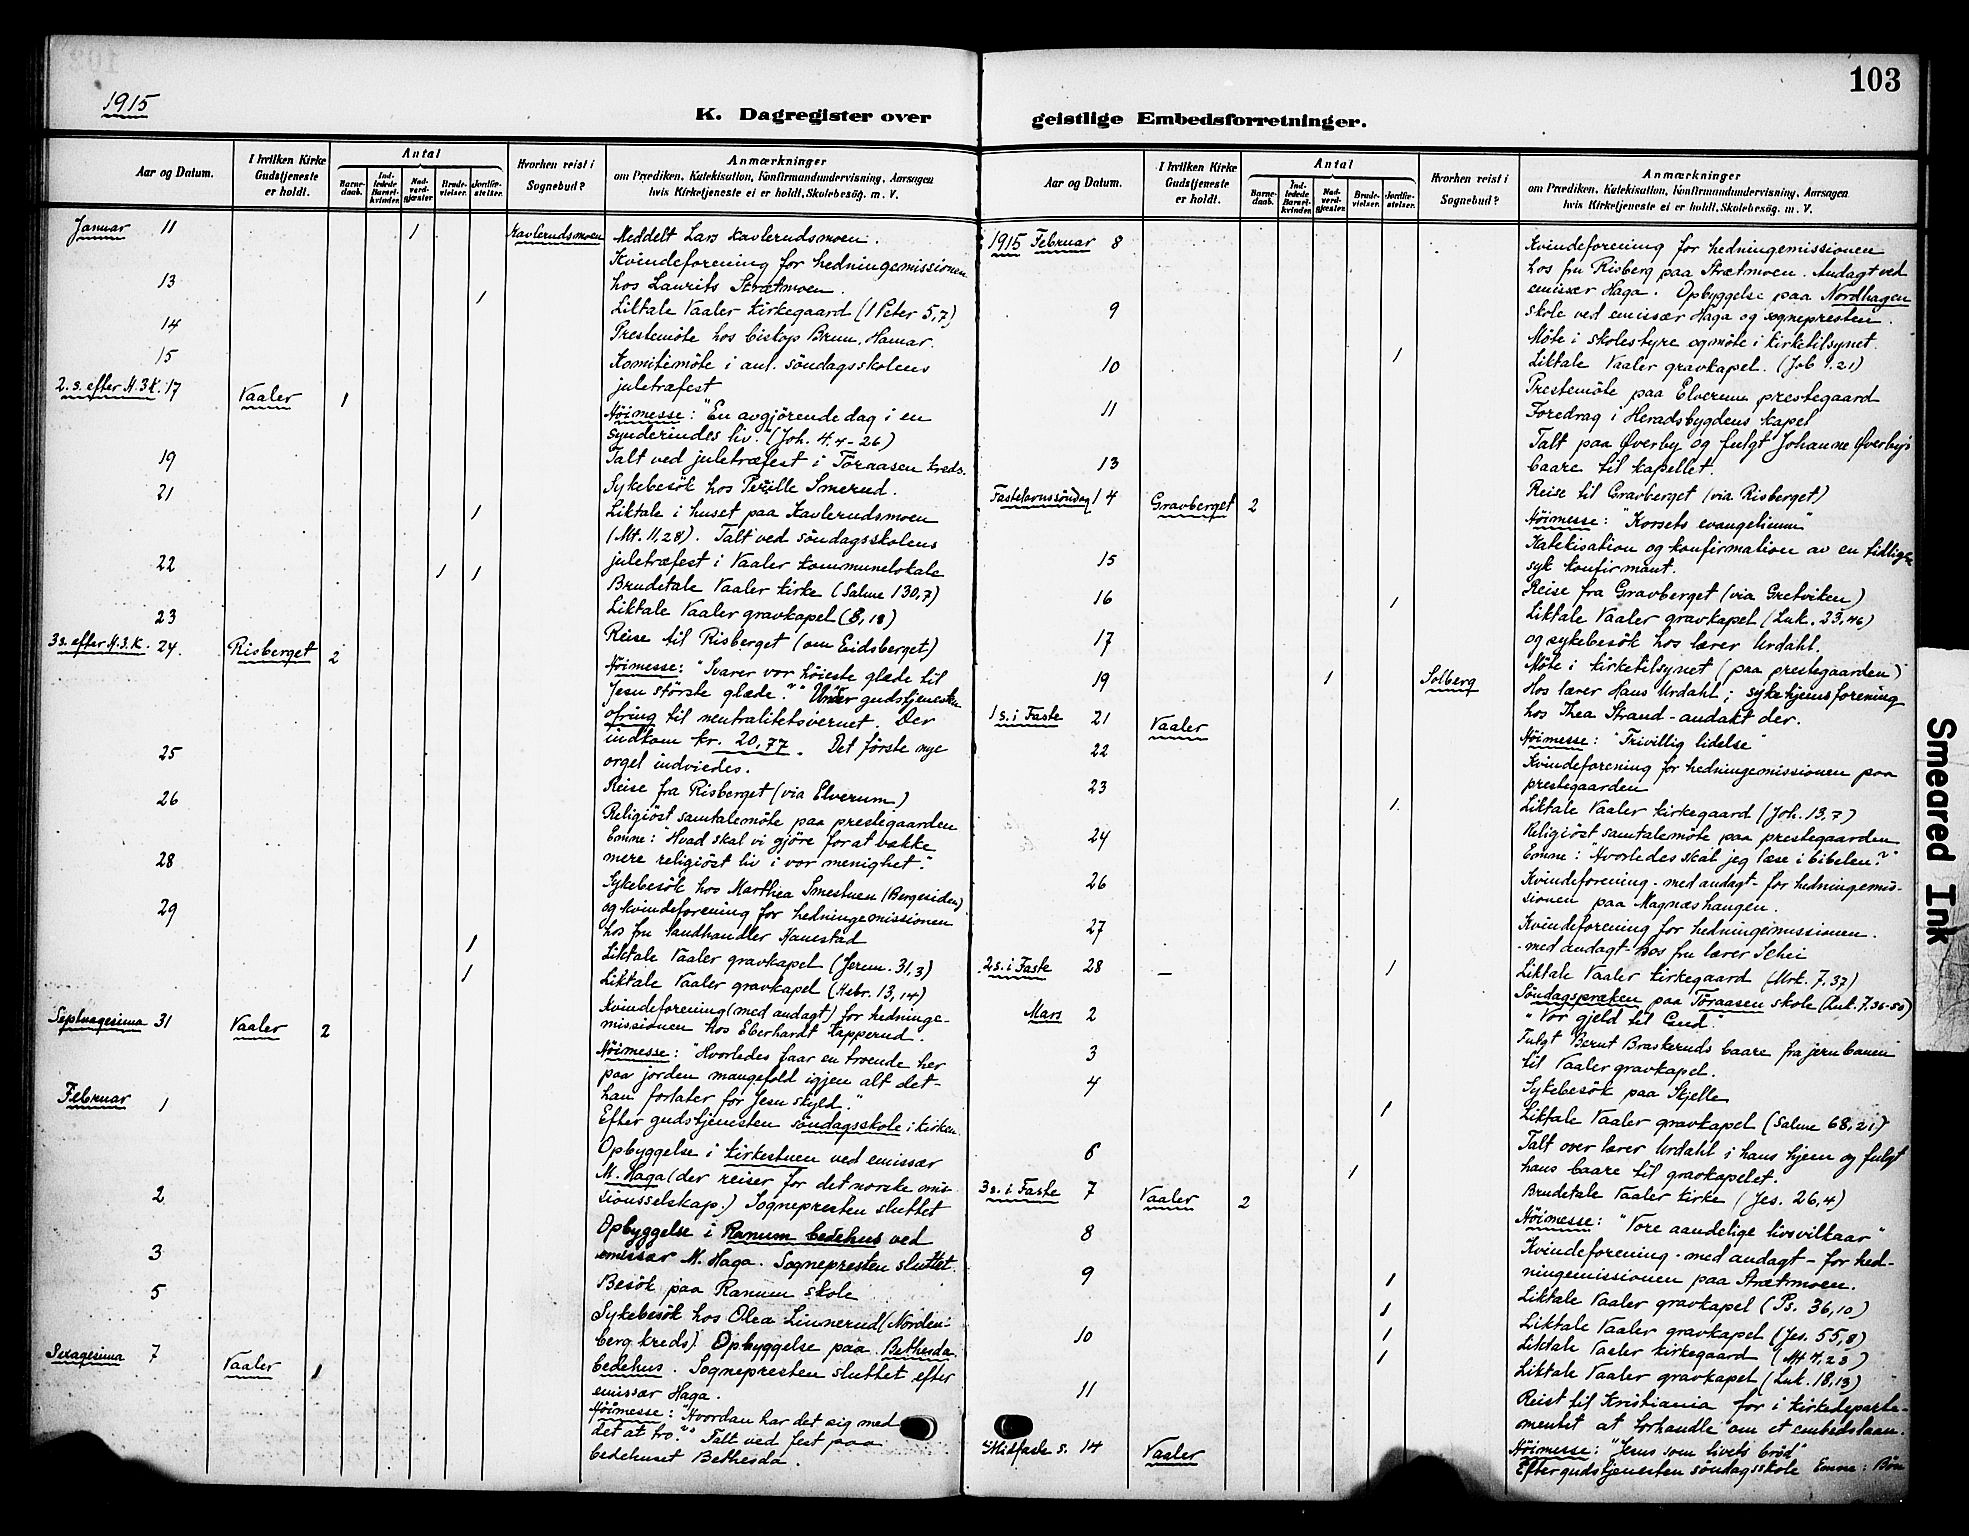 103
1915
K. Dagregister over
Aar og Datum.
I hvilken Kirke Gudstjeneste er holdt.
Antal
Barne-daab.
Ind-ledede Barsel-kvinder.
Nad-verd-gjæster
Brude-vielser.
Jordfæ-stelser.
Hvorhen reist i Sognebud?
Anmærkninger
om Prædiken, Katekisation, Konfirmandundervisning, Aarsagen
hvis Kirketjeneste ei er holdt, Skolebesög. m. V.
Januar 11 1 Kavlerudsmoen Meddelt Lars Kavlerudsmoen.
Kvindeforening for hedningemissionen
13 hos Laurits Strætmoen.
1 Liktale Vaaler kirkegaard (1 Peter 5,7)
14 Prestemöte hos biskop Brun, Hamar.
15 Komitemöte i anl. söndagsskolens
juletræfest
2. s. efter H.3K. 17 Vaaler 1 Höimesse: "En avgjörende dag i en
synderindes liv." (Joh. 4.4-26)
19 Talt ved juletræfest i Toraasen kreds.
21 Sykebesök hos Pernille Smerud.
1 Liktale i huset paa Kavlerudsmoen
(Mt. 11,28). Talt ved söndagsskolens
22 juletræfest i Vaaler kommunelokale
1 1 Brudetale Vaaler kirke (Salme 130,7)
23 Liktale Vaaler gravkapel (8,18)
3 s. efter H.3.K. 24. Risberget 2 Reise til Risberget (om Eidsberget)
Höimesse: "Svarer vor höieste glæde til
Jesu störste glæde?" Under gudstjenesten
ofring til neutralitetsvernet. Der
indkom kr. 20,77. Det förste nye
25 orgel indviedes.
Reise fra Risberget (via Elverum)
26 Religiöst samtalemöte paa prestegaarden
Emne: "Hvad skal vi gjöre for at vække
28 mere religiöst liv i vor menighet".
Sykebesök hos Marthea Smestuen (Bergesiden)
29 og kvindeforening for hedningemissionen
hos fru landhandler Hanestad
1 Liktale Vaaler gravkapel (Jerem. 31,3)
1 Liktale Vaaler gravkapel (Hebr. 13,14)
Kvindeforening (med andagt) for hedninge-
Septuagesima 31 Vaaler 2 missionen hos Eberhardt Kapperud.
Höimesse: "Hvorledes faar en troende her
paa jorden mangefold igjen alt det
Februar 1 han forlater for Jesu skyld."
Efter gudstjenesten söndagsskole i kirken.
Opbyggelse i kirkestuen ved emissær
M. Haga (der reiser for det norske mis-
2 sionsselskap.) Sognepresten sluttet
Opbyggelse i Ranum bedehus ved
3 emissær M. Haga. Sognepresten sluttet.
5 Besök paa Ranum skole
Sykebesök hos Olea Linnerud (Norden-
berg kreds). Opbyggelse paa Bethesda
Sexagesima 7 Vaaler 1 bedehus. Sognepresten sluttet efter
emissær Haga.
Höimesse: "Hvordan har det sig med
det at tro?" Talt ved fest paa
bedehuset Bethesda.
geistlige Embedsforretninger.
Aar og Datum.
I hvilken Kirke Gudstjeneste er holdt.
Antal
Barne-daab.
Ind-ledede Barsel-kvinder.
Nad-verd-gjæster
Brude-vielser.
Jordfæ-stelser.
Hvorhen reist i Sognebud?
Anmærkninger
om Prædiken, Katekisation, Konfirmandundervisning, Aarsagen
hvis Kirketjeneste ei er holdt, Skolebesög. m. V.
1915 Februar 8 Kvindeforening for hedningemissionen
hos fru Risberg paa Strætmoen. Andagt ved
emissær Haga. Opbyggelse paa Nordhagen
9 skole ved emissær Haga og sognepresten.
Möte i skolestyre og möte i kirketilsynet
10 1 Liktale Vaaler gravkapel. (Job 1.21)
Prestemöte paa Elverum prestegaard
11 Foredrag i Heradsbygdens kapel
Talt paa Øverby og fulgt Johanne Øverbys
13 baare til kapellet.
Fastelavnssöndag 14 Gravberget 2 Reise til Gravberget (via Risberget)
Höimesse: "Korsets evangelium"
Katekisation og konfirmation av en tidligere
15 syk konfirmant.
16 Reise fra Gravberget (via Gretviken)
1 Liktale Vaaler gravkapel (Luk. 23,46)
17 og sykebesök hos lærer Urdahl.
Möte i kirketilsynet (paa prestegaarden)
19 1 Solberg Hos lærer Hans Urdahl; sykehjemsforening
1 s. i Faste 21 Vaaler hos Thea Strand - andakt der.
Höimesse: "Frivillig lidelse"
22 Kvindeforening for hedningemissionen paa
23 prestegaarden
1. Liktale Vaaler kirkegaard (Joh. 13,7)
24 Religiöst samtalemöte paa prestegaarden
Emne: "Hvorledes skal jeg læse i bibelen?"
26 Kvindeforening - med andagt - for hedningemis-
sionen paa Magnæshaugen.
27 Kvindeforening for hedningemissionen.
- med andagt - hos fru lærer Schei
2 s. i Faste 28 — 1 Liktale Vaaler kirkegaard (Mrk. 7,37)
Söndagspræken paa Toraasen skole (Luk. 7.36-50)
Mars 2 "Vor gjeld til Gud".
Fulgt Bernt Braskeruds baare fra jernbanen
3 til Vaaler gravkapel.
4 Sykebesök paa Skjelle
1 Liktale Vaaler gravkapel (Salme 68,21)
6 Talt over lærer Urdahl i hans hjem og fulgt
hans baare til gravkapelet.
3 s. i Faste 7 Vaaler 2 1 Brudetale Vaaler kirke (Jes. 26,4)
Höimesse: "Vore aandelige livsvilkaar"
8 Kvindeforening - med andagt - for hed-
9 ningemissionen paa Strætmoen.
1 Liktale Vaaler gravkapel (Ps. 36,10)
1 Liktale Vaaler gravkapel (Jes. 55,8)
10 1 Liktale Vaaler kirkegaard (Mt 4,23)
1 Liktale Vaaler gravkapel (Luk. 18,13)
11 Reist til Kristiania for i kirkedeparte-
mentet at forhandle om et embedslaan.
Midfaste s. 14 Vaaler Höimesse: "Jesus som livets bröd"
Efter gudstjenesten söndagsskole Emne: Bön
Smeared Ink